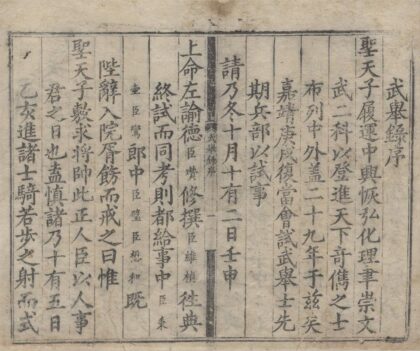 武舉錄序
聖天子履運中興恢弘化理聿崇文
武二科以登進天下竒儁之士
布列中外盖二十九年于茲矣
嘉靖庚戌復當會試武舉士先
期兵部以試事
請乃冬十月十有二日壬申
上命左諭德臣 修撰臣 徃典
終試而同考則都給事中臣東
郎中臣 臣 既
陛辭入院胥飭而戒之曰惟
聖天子敷求將帥此正人臣以人事
君之日也盍慎諸乃十有五日
乙亥進諸士騎若步之射而式